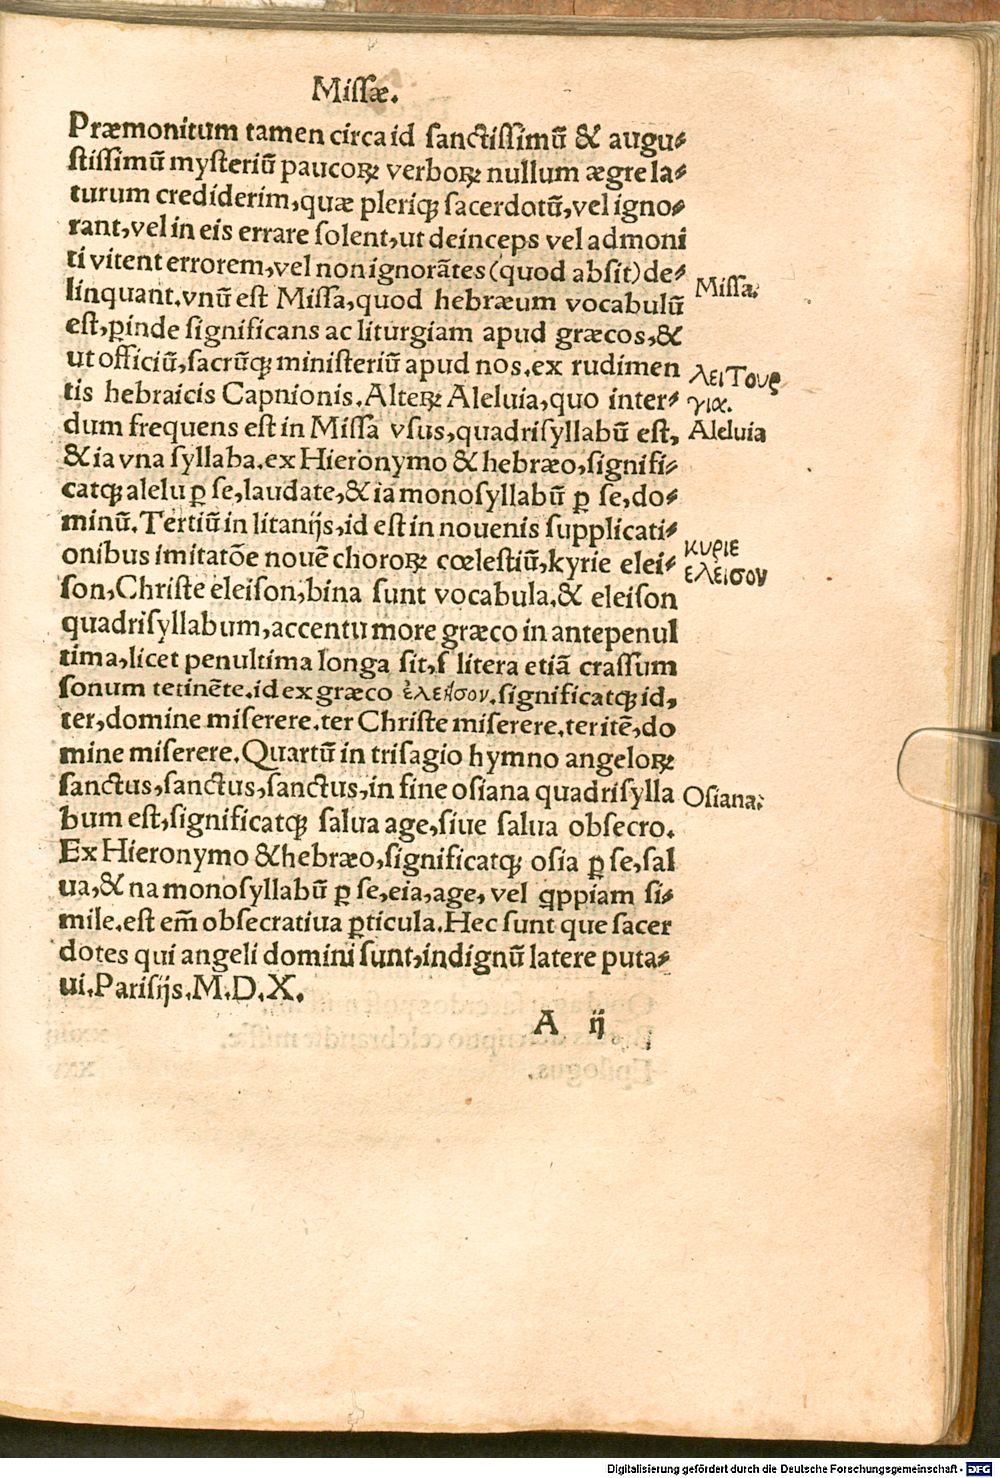 Missæ.
Præmonitum tamen circa id sanctissimū & augu-
stissimū mysteriū paucoꝝ verboꝝ nullum ægre la-
turum crediderim, quæ pleriqꝫ sacerdotū, vel igno-
rant, vel in eis errare solent, ut deinceps vel admoni
ti vitent errorem, vel non ignorātes (quod absit) de-
linquant. vnū est Missa, quod hebræum vocabulū
est, ꝑinde significans ac liturgiam apud græcos, &
ut officiū, sacrūqꝫ ministeriū apud nos. ex rudimen
tis hebraicis Capnionis. Alteꝝ Aleluia, quo inter-
dum frequens est in Missa vsus, quadrisyllabū est,
& ia vna syllaba. ex Hieronymo & hebræo, signifi-
catqꝫ alelu ꝑ se, laudate, & ia monosyllabū ꝑ se, do-
minū. Tertiū in litanijs, id est in nouenis supplicati-
onibus imitatōe nouē choroꝝ cœlestiū, kyrie elei-
son, Christe eleison, bina sunt vocabula. & eleison
quadrisyllabum, accentu more græco in antepenul
tima, licet penultima longa sit, s litera etiā crassum
sonum tetinēte. id ex græco ἐλεησον. significatqꝫ id,
ter, domine miserere. ter Christe miserere. ter itē, do
mine miserere. Quartū in trisagio hymno angeloꝝ
sanctus, sanctus, sanctus, in fine osiana quadrisylla
bum est, significatqꝫ salua age, siue salua obsecro.
Ex Hieronymo & hebræo, significatqꝫ osia ꝑ se, sal
ua, & na monosyllabū ꝑ se, eia, age, vel ꝗppiam si-
mile. est em̄ obsecratiua ꝑticula. Hec sunt que sacer
dotes qui angeli domini sunt, indignū latere puta-
ui. Parisijs. M. D. X.
A ij
Missa.
λειΤουρ
για.
Aleluia
κυριε
ελεισον
Osiana.
Digitalisierung gefördert durch die Deutsche Forschungsgemeinschaft - DFG